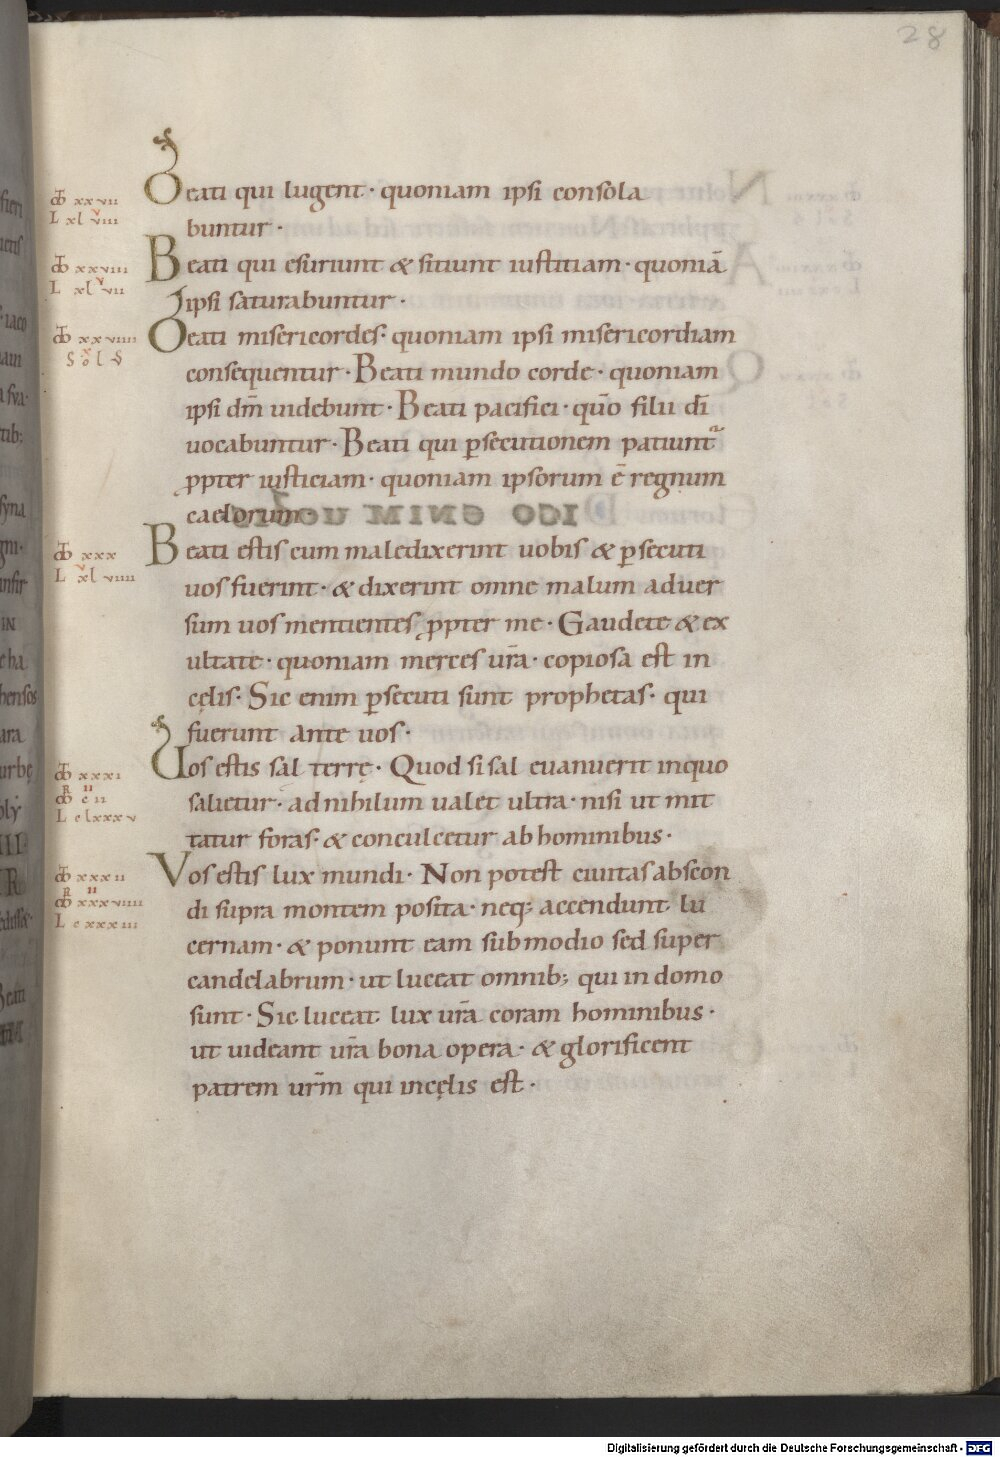 28
Beati qui lugent · quoniam ipsi consola
buntur ·
Beati qui esuriunt & sitiunt iustitiam · quoniā
ipsi saturabuntur ·
Beati misericordes · quoniam ipsi misericordiam
consequentur · Beati mundo corde · quoniam
ipsi dm̄ uidebunt · Beati pacifici · qūo filii dī
uocabuntur · Beati qui ꝑsecutionem patiunt᷑
ꝓpter iusticiam · quoniam ipsorum ē regnum
caelorum ·
Beati estis cum maledixerint uobis & ꝑsecuti
uos fuerint · & dixerint omne malum aduer
sum uos mentientes ꝓpter me · Gaudete & ex
ultate · quoniam merces ur̄a · copiosa est in
cęlis · Sic enim ꝑsecuti sunt prophetas · qui
fuerunt ante uos ·
Uos estis sal terrę · Quod si sal euanuerit in quo
salietur · ad nihilum ualet ultra · nisi ut mit
tatur foras · & conculcetur ab hominibus ·
Vos estis lux mundi · Non potest ciuitas abscon
di supra montem posita · neq; accendunt lu
cernam · & ponunt eam sub modio sed super
candelabrum · ut luceat omnib; qui in domo
sunt · Sic luceat lux ur̄a coram hominibus ·
ut uideant ur̄a bona opera · & glorificent
patrem urm̄ qui in cęlis est ·
xxvii
L xlviii
xxviii
L xlvii
xxviiii
xxx
L xlviiii
xxxi
R II
c ii
L clxxxv
xxxii
R II
xxxviiii
L cxxxiii
Digitalisierung gefördert durch die Deutsche Forschungsgemeinschaft - DFG